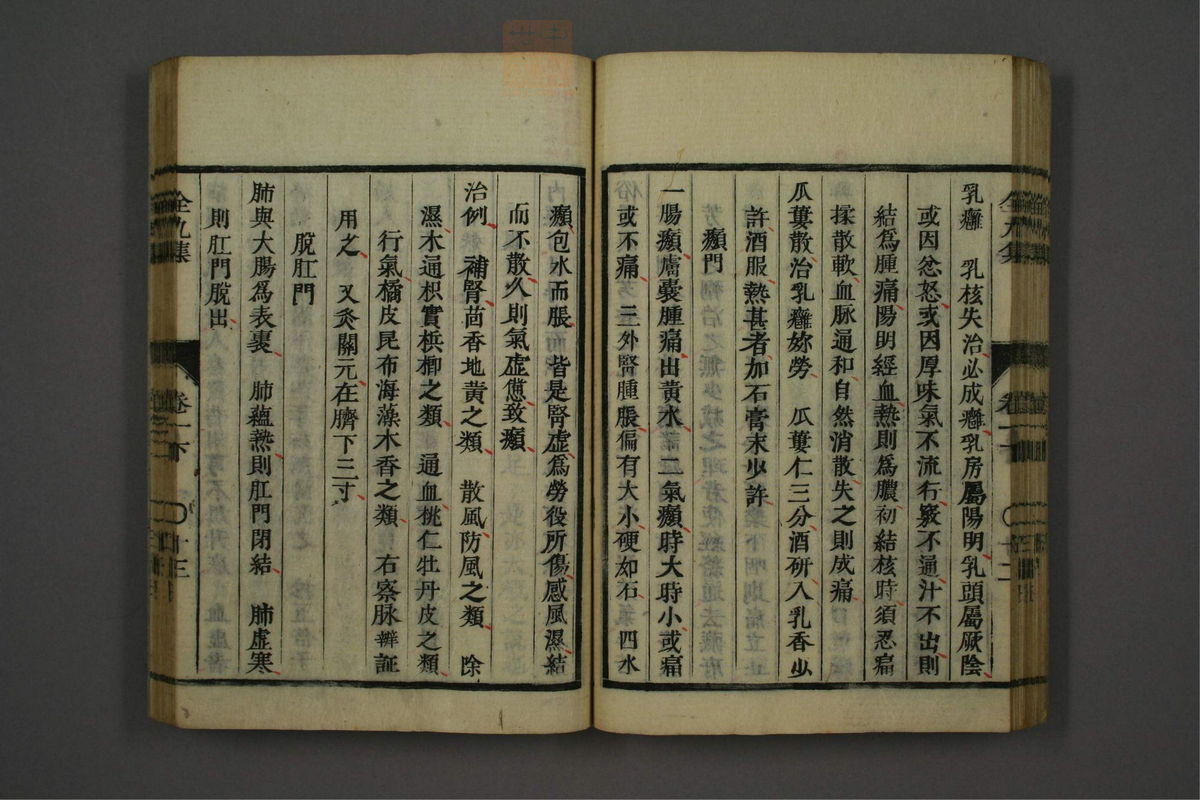 乳癰　乳核失治必成癰乳房屬陽明乳頭屬厥陰
或因忿怒或因厚味氣不流行竅不通汁不出則
結爲腫痛陽明經血熱則爲膿初結核時須忍痛
揉散軟血脉通和自然消散失之則成痛
瓜蔞散治乳癰妳勞　瓜蔞仁三分酒研入乳香少
許酒服熱甚者加石膏末少許
㿗門
一腸㿗膚囊腫痛出黃水二氣㿗時大時小或痛
或不痛　三外腎腫脹偏有大小硬如石　四水
全九集
卷一下
十二
㿗包水而脹　皆是腎虛爲勞役所傷感風濕結
而不散久則氣虛憊致㿗
治例　補腎茴香地黃之類　散風防風之類　除
濕木通枳實梹榔之類　通血桃仁牡丹皮之類
行氣橘皮昆布海藻木香之類　右察脉辨証
用之　又灸關元在臍下三寸
脫肛門
肺與大腸爲表裏　肺蘊熱則肛門閉結　肺虛寒
則肛門脫出
全九集
卷一下
十三